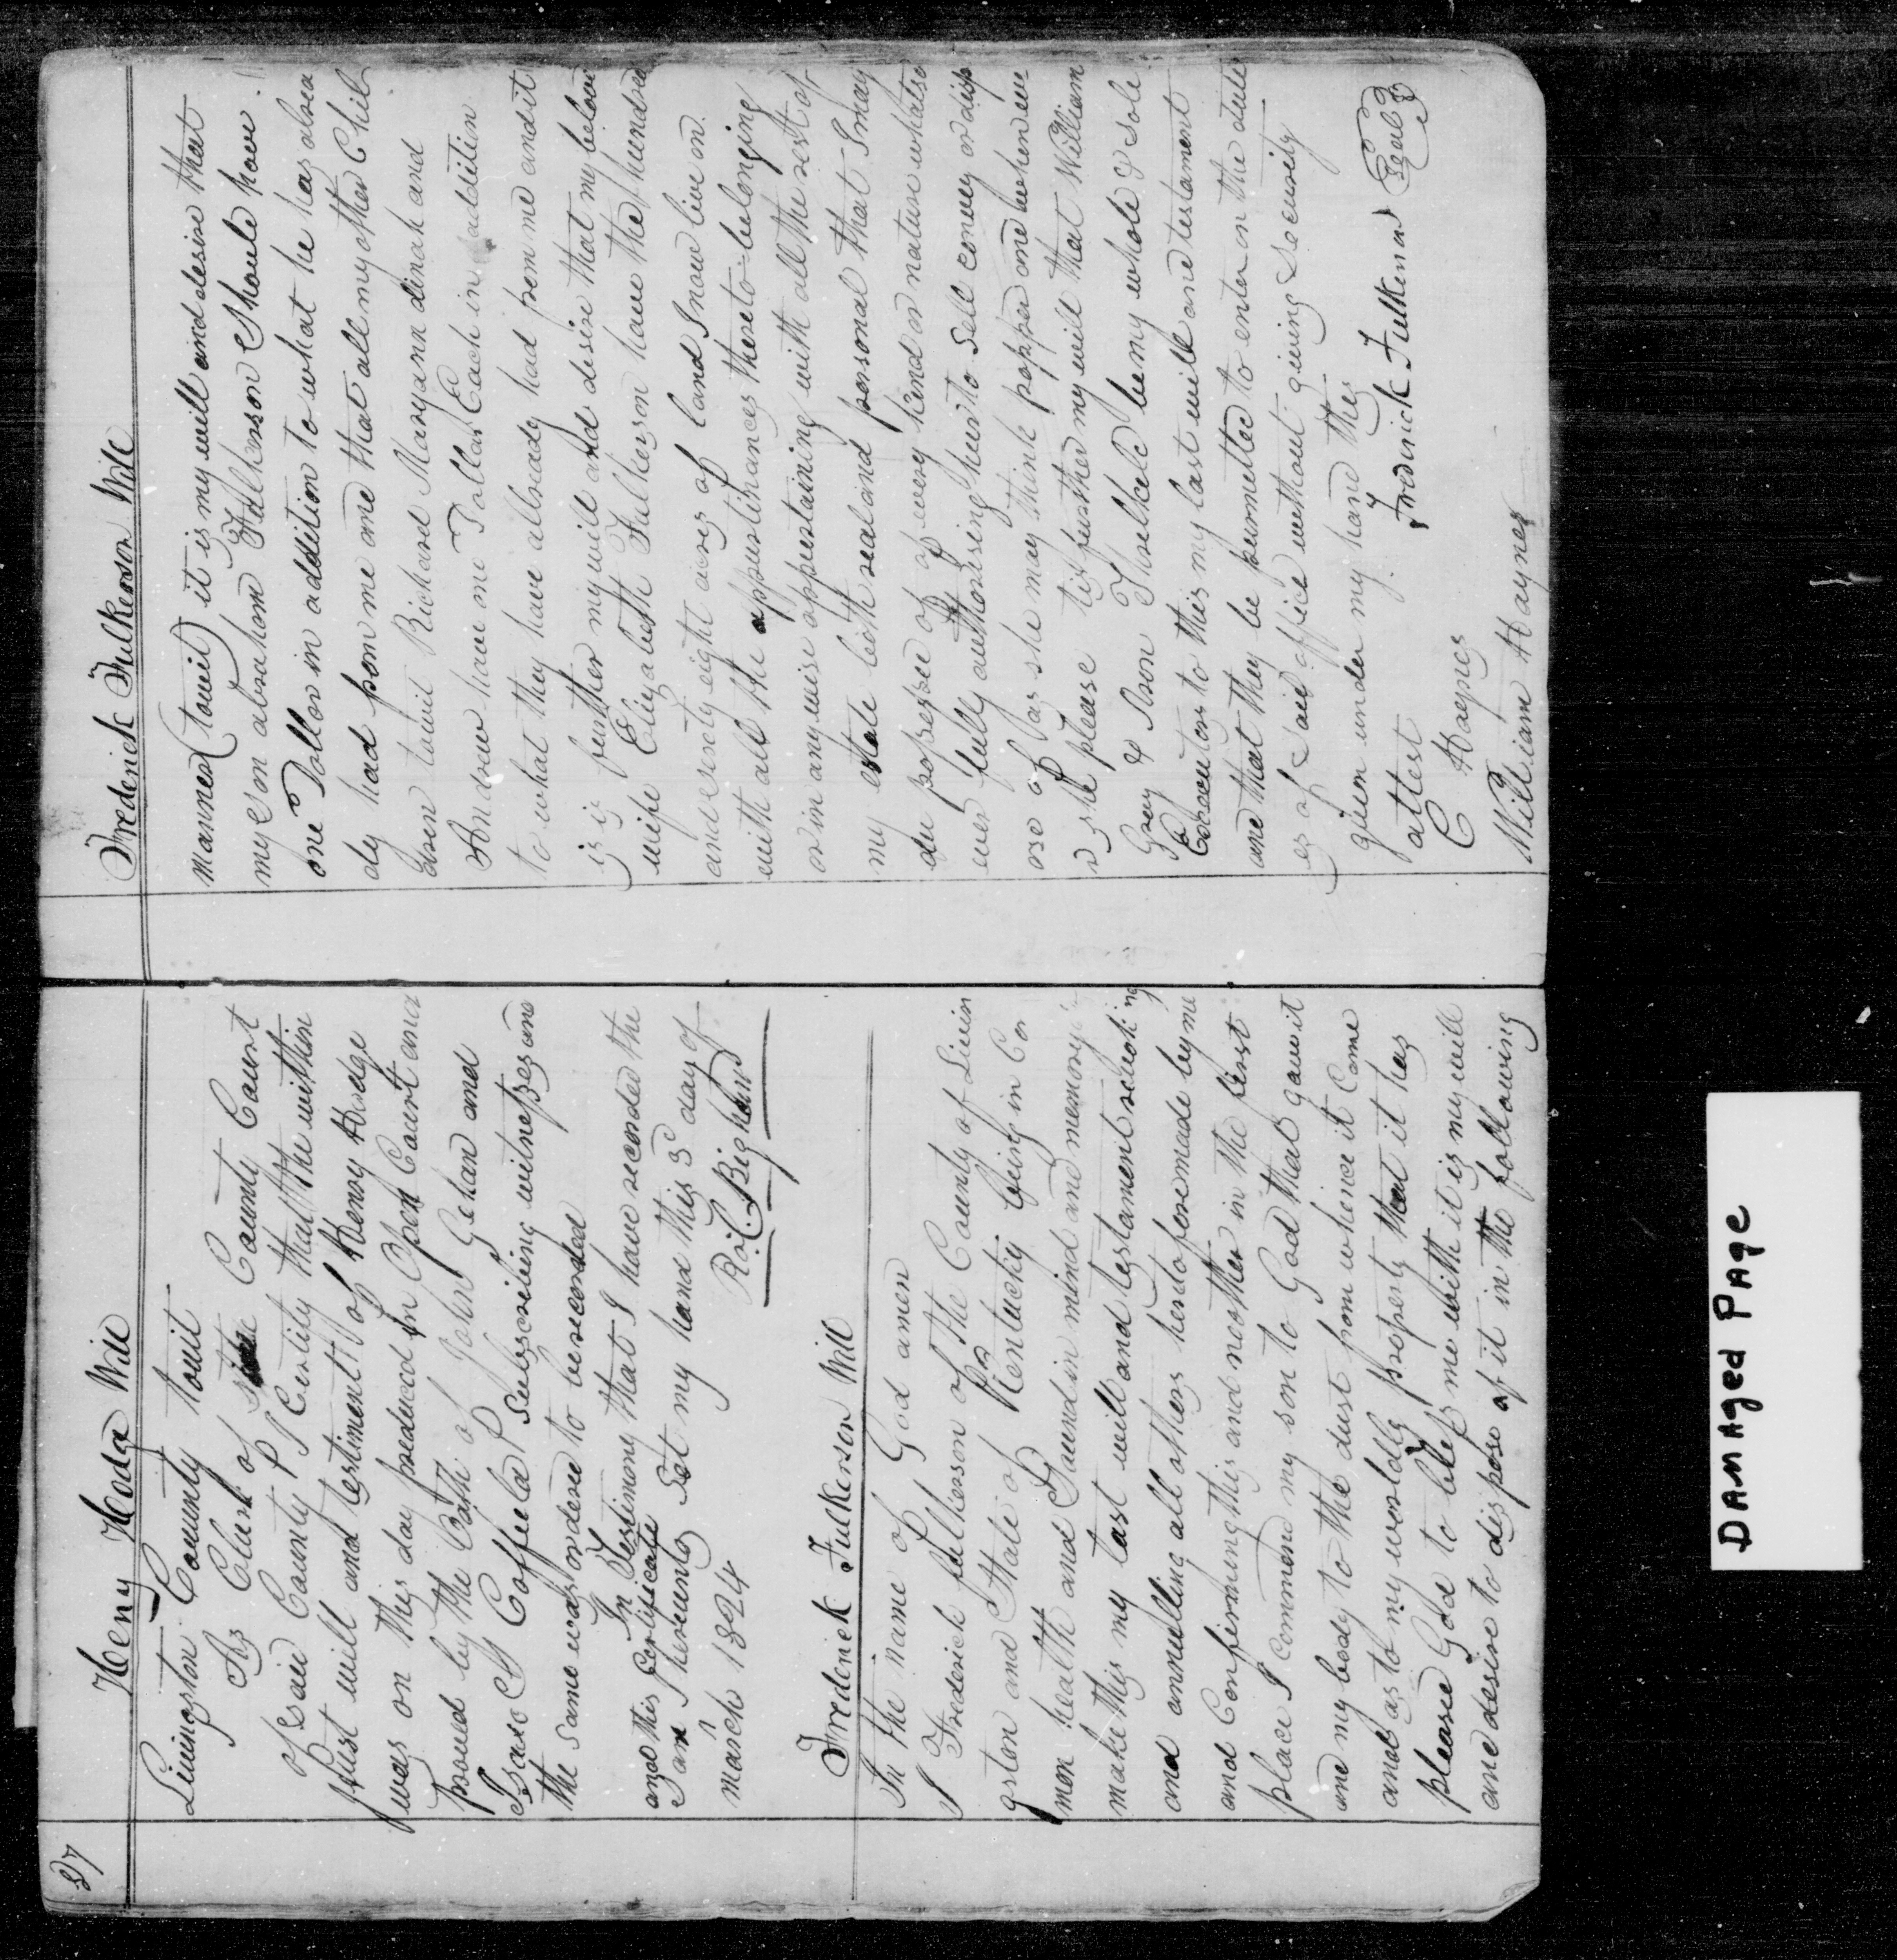 27
Heny Hodge Will
Livingston County towit
As Clerk of the County Court
of Said County I Certify that the within
last will and testiment of Henry Hodge
was on this day produced in Open Court and
proved by the Oath of John Gehan and
Isaac M Coffield Subscribing witnesses and
the same was ordered to be recorded
In Testimony that I have recorded the
and this Certificate
Same I hereunto Set my hand this 3d day of
march 1824 Ro. C. Bigham
Frederick Fulkerson Will
In the name of God amen
I Frederick fulkerson of the County of Livin
gston and State of Kentucky being in Co
mon health and Sound in mind and memory
make this my last will and testament revoking
and annulling all others heretofore made by me
and Confirming this and no other in the first
place I Commend my son to God that gave it
and my body to the dust from whence it Came
and as to my worldly property that it has
pleased God to bless me with it is my will
and desire to dispose of it in the following
Frederick Fulkerson Will
manner (towit) it is my will and desire that
my son absahom Fulkerson Should have
one Dollar in addition to what he has alrea
dy had from me and that all my other Chil
dren towit Richard Maryann dinah and
Andrew have one Dollar Each in addition
to what they have allready had from me and it
is is further my will and desire that my belove
wife Elizabeth Fulkerson have the hundred
and seventy eight acres of land I now live on
with all the appurtinances thereto belonging
or in any wise appertaining with all the rest of
my estate both real and personal that I may
die possessed of of every kind or nature whatso
ever fully authorising her to Sell convey or disp
ose of as she may think propper and when eve
r she please tis further my will that William
Gray & Ison Threlkeld be my whole & Sole
Executors to this my last will and testament
and that they be permitted to enter on the duti
es of Said office without giving Security
given under my hand this
attest Frederick Fulkerson Seal
C Haynes
William Haynes
DAMAGED PAGE